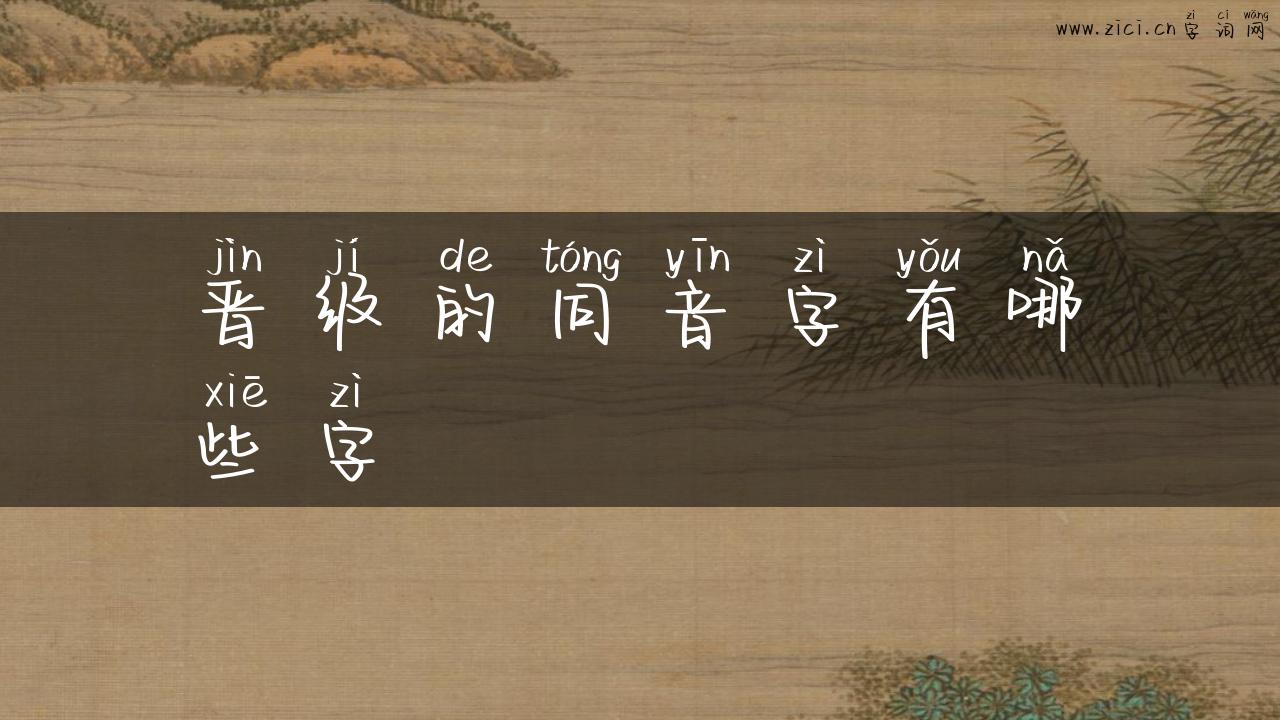 zì cí wǎng
www.zici.cn 字 词 网
jìn jí de tóng yīn zì yǒu nǎ
晋 级 的 同 音 字 有 哪
xiē zì
些 字